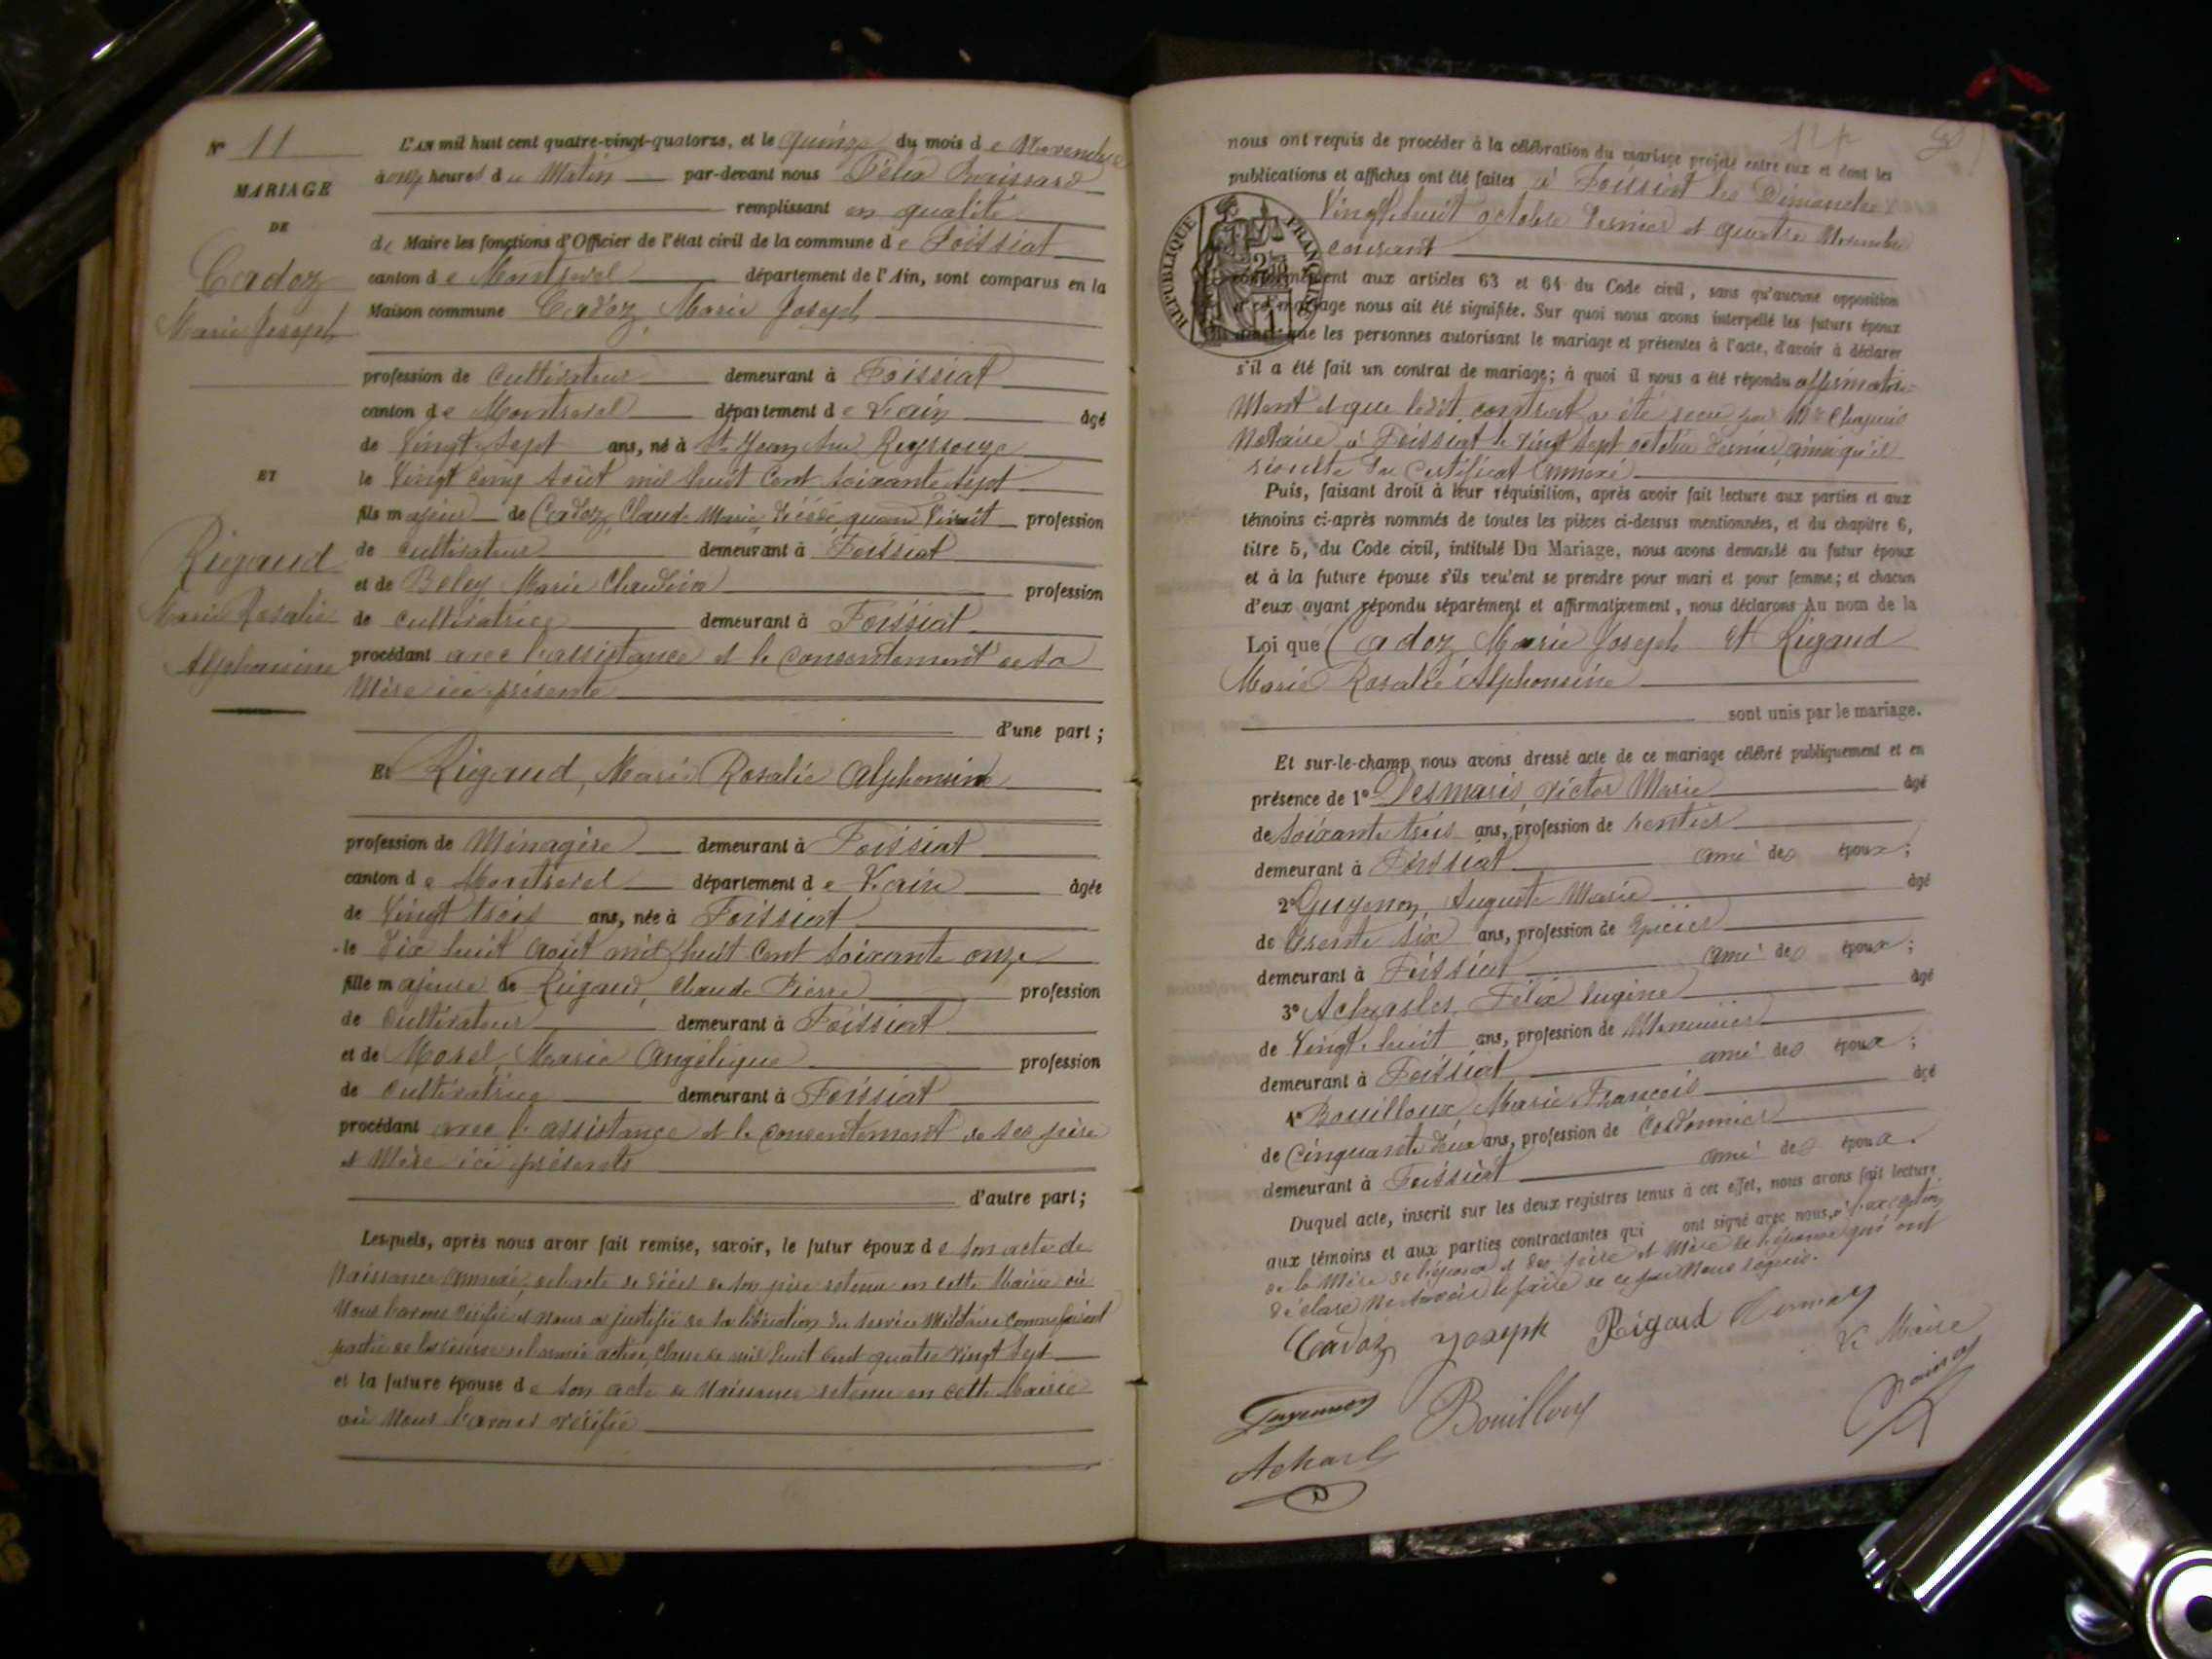 N° 11
MARIAGE
DE
Cadoz
Marie Joseph
ET
Rigaud
Marie Rosalie
Alphonsine
L'AN mil huit cent quatre-vingt-quatorze, et le quinze du mois de Novembre
à onze heures du Matin par-devant nous Félix
remplissant en qualité
de Maire les fonctions d'Officier de l'état civil de la commune de Foissiat
canton de Montrevel département de l'Ain, sont comparus en la
Maison commune Cadoz, Marie Joseph
profession de Cultivateur demeurant à Foissiat
canton de Montrevel département de L'ain âgé
de Vingt Sept ans, né à St Jean Sur Reyssouze
le Vingt Cinq Août mil huit Cent Soixante Sept
fils majeur de Cadoz, Claude Marie, décédé, quand vivait profession
de Cultivateur demeurant à Foissiat
et de Beley Marie Claudine profession
de Cultivatrice demeurant à Foissiat
procédant avec l'assistance et le Consentement de sa
Mère ici présente
d'une part ;
Et Rigaud, Marie Rosalie Alphonsine
profession de Ménagère demeurant à Foissiat
canton de Montrevel département de L'ain âgée
de Vingt trois ans, née à Foissiat
le Dix huit Août mil huit Cent Soixante onze
fille majeure de Rigaud, Claude Pierre profession
de Cultivateur demeurant à Foissiat
et de Morel, Marie Angélique profession
de Cultivatrice demeurant à Foissiat
procédant avec l'assistance et le Consentement de ses père
et Mère ici présents
d'autre part ;
Lesquels, après nous avoir fait remise, savoir, le futur époux de son acte de
Naissance annexé, de l'acte de décès de son père retenu en cette Mairie où
Nous l'avons vérifié et nous a justifié de sa libération du service Militaire comme faisant
partie de la réserve de l'armée active, Classe de mil huit cent quatre Vingt Sept
et la future épouse de son acte de Naissance retenu en cette Mairie
où Nous l'avons vérifié
nous ont requis de procéder à la célébration du mariage projeté entre eux et dont les
publications et affiches ont été faites à Foissiat les Dimanches
Vingt huit octobre Dernier et quatre Novembre
courant
RÉPUBLIQUE FRANÇAISE
conformément aux articles 63 et 64 du Code civil, sans qu'aucune opposition
à ce mariage nous ait été signifiée. Sur quoi nous avons interpellé les futurs époux
ainsi que les personnes autorisant le mariage et présentes à l'acte, d'avoir à déclarer
s'il a été fait un contrat de mariage ; à quoi il nous a été répondu affirmative-
Ment et que ledit contrat a été reçu par Me Chapuis
Notaire à Foissiat le Vingt Sept octobre Dernier, ainsi qu'il
résulte du Certificat annexé
Puis, faisant droit à leur réquisition, après avoir fait lecture aux parties et aux
témoins ci-après nommés de toutes les pièces ci-dessus mentionnées, et du chapitre 6,
titre 5, du Code civil, intitulé Du Mariage, nous avons demandé au futur époux
et à la future épouse s'ils veulent se prendre pour mari et pour femme ; et chacun
d'eux ayant répondu séparément et affirmativement, nous déclarons Au nom de la
Loi que Cadoz, Marie Joseph Et Rigaud
Marie Rosalie Alphonsine
sont unis par le mariage.
Et sur-le-champ nous avons dressé acte de ce mariage célébré publiquement et en
présence de 1° Desmaris, Victor Marie âgé
de Soixante trois ans, profession de rentier
demeurant à Foissiat ami des époux ;
2° Guyenon, Auguste Marie âgé
de trente six ans, profession de Epicier
demeurant à Foissiat ami des époux ;
3° Acharles, Félix Eugène âgé
de Vingt huit ans, profession de Menuisier
demeurant à Foissiat ami des époux ;
4° Bouilloux, Marie François âgé
de Cinquante deux ans, profession de Cordonnier
demeurant à Foissiat ami des époux.
Duquel acte, inscrit sur les deux registres tenus à cet effet, nous avons fait lecture
aux témoins et aux parties contractantes qui ont signé avec nous, à l'exception
de la Mère de l'époux et des père et Mère de l'épouse qui ont
déclaré Ne savoir le faire de ce par Nous requis.
Cadoz Joseph Rigaud
Le Maire
Guyenon Bouilloux
Acharles